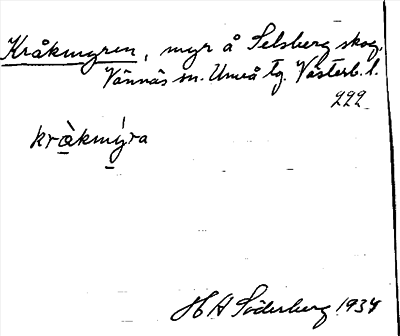 Kråkmyren, myr å Selsberg skog,
Vännäs sn. Umeå tg. Västerb. l.
222
krȧ̀kmýra
H A Söderberg 1934